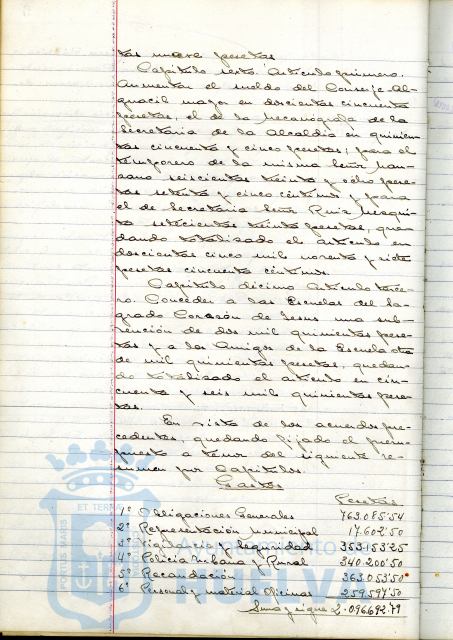 tas nueve pesetas
Capitulo sexto. Articulo primero.
Aumentar el sueldo del Conserje Al-
guacil mayor en doscientas cincuenta
pesetas, el de la mecanografa de la
Secretaria de la Alcaldia en quinien-
tas cincuenta y cinco pesetas; para el
temporero de la misma Señor Man-
zano seiscientas treinta y ocho pese-
tas setenta y cinco céntimos y para
el de Secretaria Señor Ruiz Mezqui-
ta setecientas treinta pesetas, que-
dando totalizado el articulo en
doscientas cinco mil noventa y siete
pesetas cincuenta céntimos.
Capitulo décimo Articulo terce-
ro. Conceder a las Escuelas del Sa-
grado Corazón de Jesus una sub-
vención de dos mil quinientas pese-
tas y a los Amigos de la Escuela otra
de mil quinientas pesetas, quedan-
do totalizado el articulo en cin-
cuenta y seis mil quinientas pese-
tas.
En vista de los acuerdos pre-
cedentes, quedando fijado el presu-
puesto a tenor del siguiente re-
sumen por Capitulos.
Gastos
Pesetas
1º Obligaciones Generales 763.085.54
2º Representación municipal 17.602.50
3º Vigilancia y Seguridad 353.153.25
4º Policia Urbana y Rural 340.200.50
5º Recaudación 363.053.50
6º Personal y material oficinas 259.597.50
Suma y sigue 2.096.692.79
PORTUS MARIS ET TERR
Ayuntamiento
HUELV